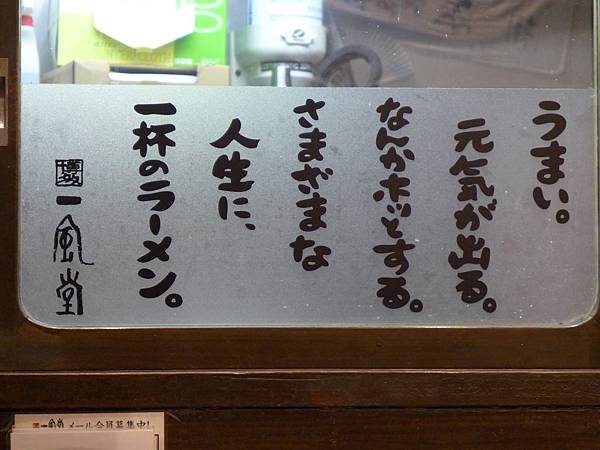 うまい。
元気が出る。
なんかホッとする。
さまざまな
人生に、
一杯のラーメン。
博多
一風堂
一風堂 メール会員募集中!